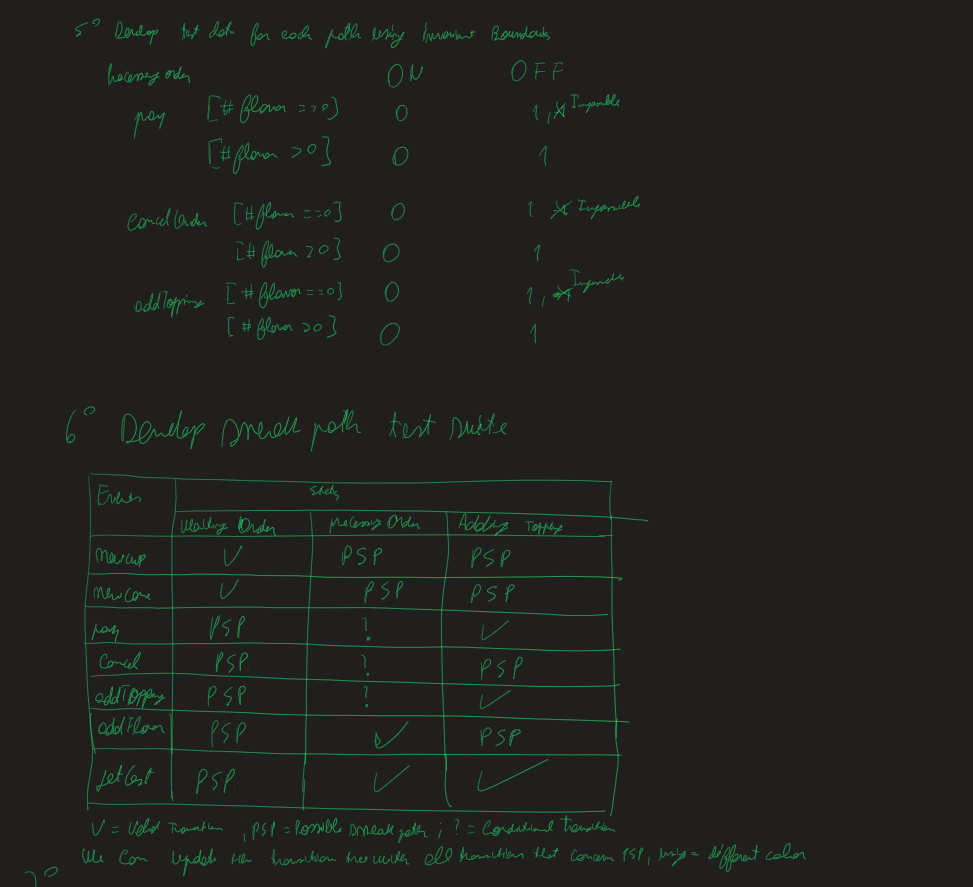 5° Develop test data for each path using Invariant Boundaries
Processing order ON OFF
pay [# flavor == 0] 0 1, Impossible
[# flavor > 0] 0 1
Cancel Order [# flavor == 0] 0 1 Impossible
[# flavor > 0] 0 1
addTopping [# flavor == 0] 0 1, Impossible
[# flavor > 0] 0 1
6° Develop sneak path test suite
Events States
Waiting Order processing Order Adding Topping
newcup V PSP PSP
newCone V PSP PSP
pay PSP ? ✓
Cancel PSP ? PSP
addTopping PSP ? ✓
addFlavor PSP ✓ PSP
getCost PSP ✓ ✓
V = Valid Transition, PSP = Possible sneak path ; ? = Conditional transition
We Can update transition tree with all transitions that concern PSP, using a different color
7°